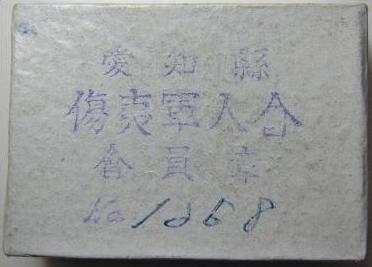 愛知縣
傷夷軍人会
會員章
No 1068